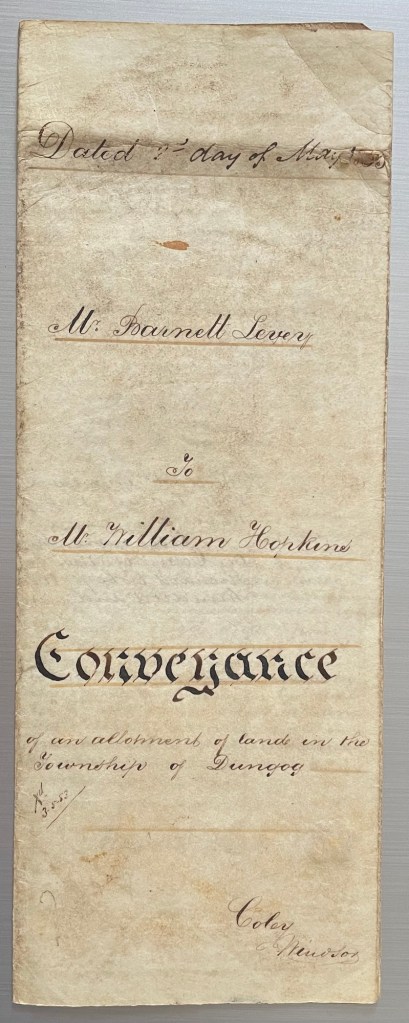 Dated 2d day of May
Mr. Barnett Levey
To
Mr. William Hopkins
Conveyance
of an allotment of land in the
Township of Dungog
3.5.53
Coley
Windsor